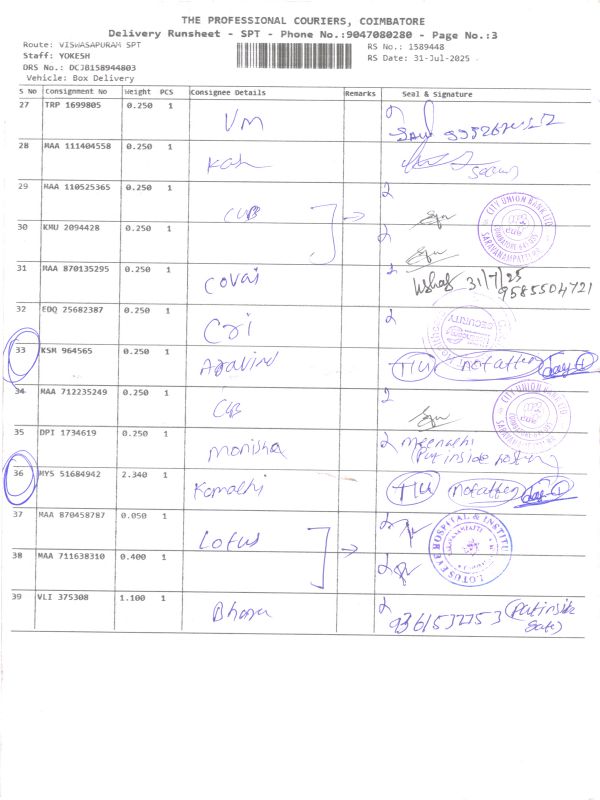 THE PROFESSIONAL COURIERS, COIMBATORE
Delivery Runsheet - SPT - Phone No.:9047080280 - Page No.:3
Route: VISWASAPURAM SPT
RS No.: 1589448
Staff: YOKESH
RS Date: 31-Jul-2025
DRS No.: DCJB158944803
Vehicle: Box Delivery
S No Consignment No Weight PCS Consignee Details Remarks Seal & Signature
27 TRP 1699805 0.250 1 VM
28 MAA 111404558 0.250 1
29 MAA 110525365 0.250 1 CUB
CITY UNION BANK LTD
SARAVANAMPATTI
30 KMU 2094428 0.250 1
31 MAA 870135295 0.250 1 Covai 31/7/25
9585504721
32 EDQ 25682387 0.250 1 Cri
SECURITY
33 KSM 964565 0.250 1 Aravind TIU not atten
34 MAA 712235249 0.250 1 CUB
CITY UNION BANK LTD
35 DPI 1734619 0.250 1 Monisha Meenachi
Put inside
36 MYS 51684942 2.340 1 Komathi TIU not atten
37 MAA 870458787 0.050 1 Lotus
LOTUS EYE HOSPITAL & INSTITU
38 MAA 711638310 0.400 1
39 VLI 375308 1.100 1 (Put inside
Gate)